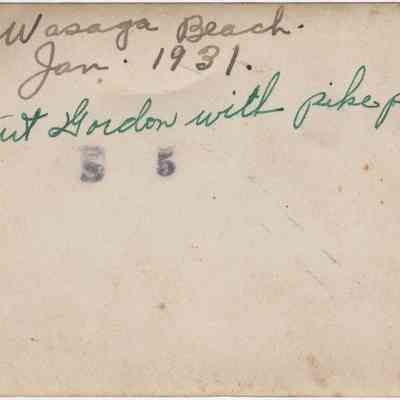 Wasaga Beach.
Jan. 1931.
Gordon with pike p
S 5